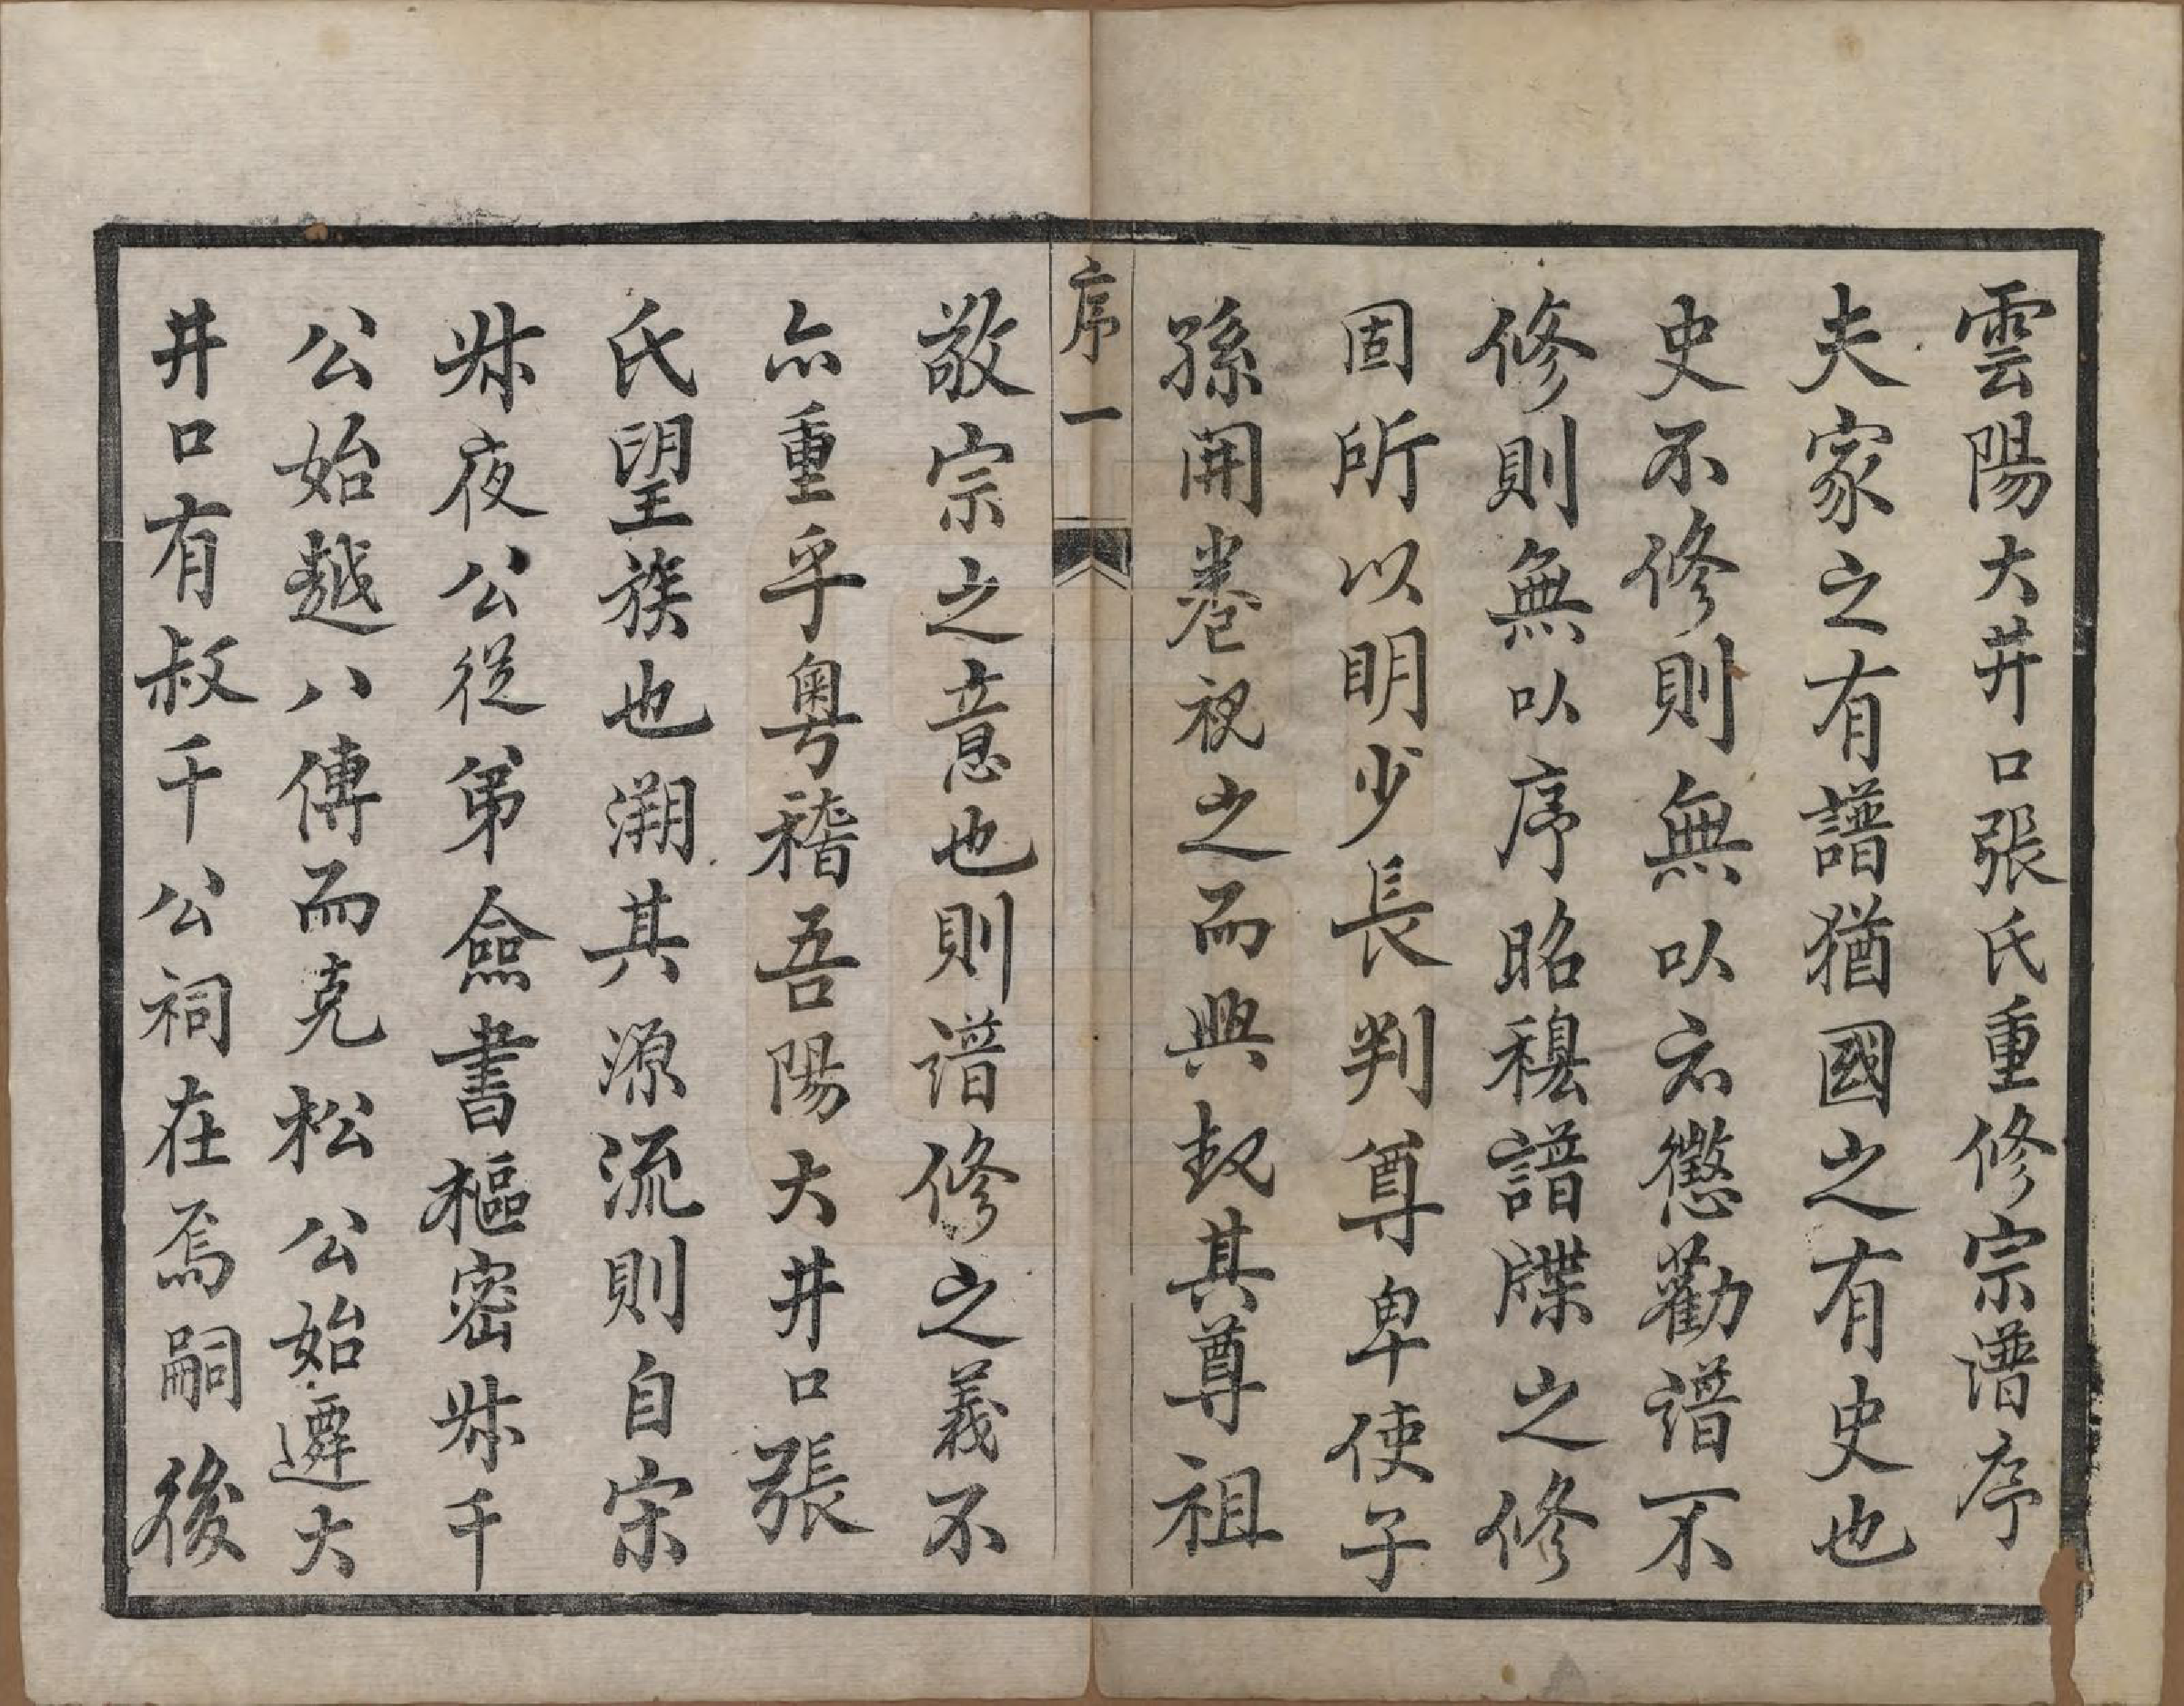 雲陽大井口張氏重修宗譜序
夫家之有譜猶國之有史也
史不修則無以示懲勸譜不
修則無以序昭穆譜牒之修
固所以明少長判尊卑使子
孫開卷視之而興起其尊祖
序一
敬宗之意也則譜修之義不
亦重乎粵稽吾陽大井口張
氏望族也溯其源流則自宋
叔夜公從弟僉書樞密叔千
公始越八傳而克松公始遷大
井口有叔千公祠在焉嗣後